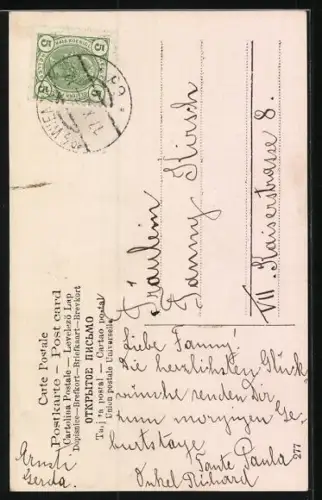 5 5
WIEN
Carte Postale
Postkarte — Post card
Cartolina Postale — Levelező Lap
Dopisnice—Brefkort—Briefkaart—Brevkort
ОТКРЫТОЕ ПИСЬМО
postal — Cartao postal
Union postale Universelle
Fräulein
Fanny Kirsch
VII. Kaiserstrasse 8.
Liebe Fanny!
Die herzlichsten Glück
wünsche senden Dir
zum morgigen Ge-
burtstage
Tante Paula
Onkel Richard
Ernst
Gerda.
277